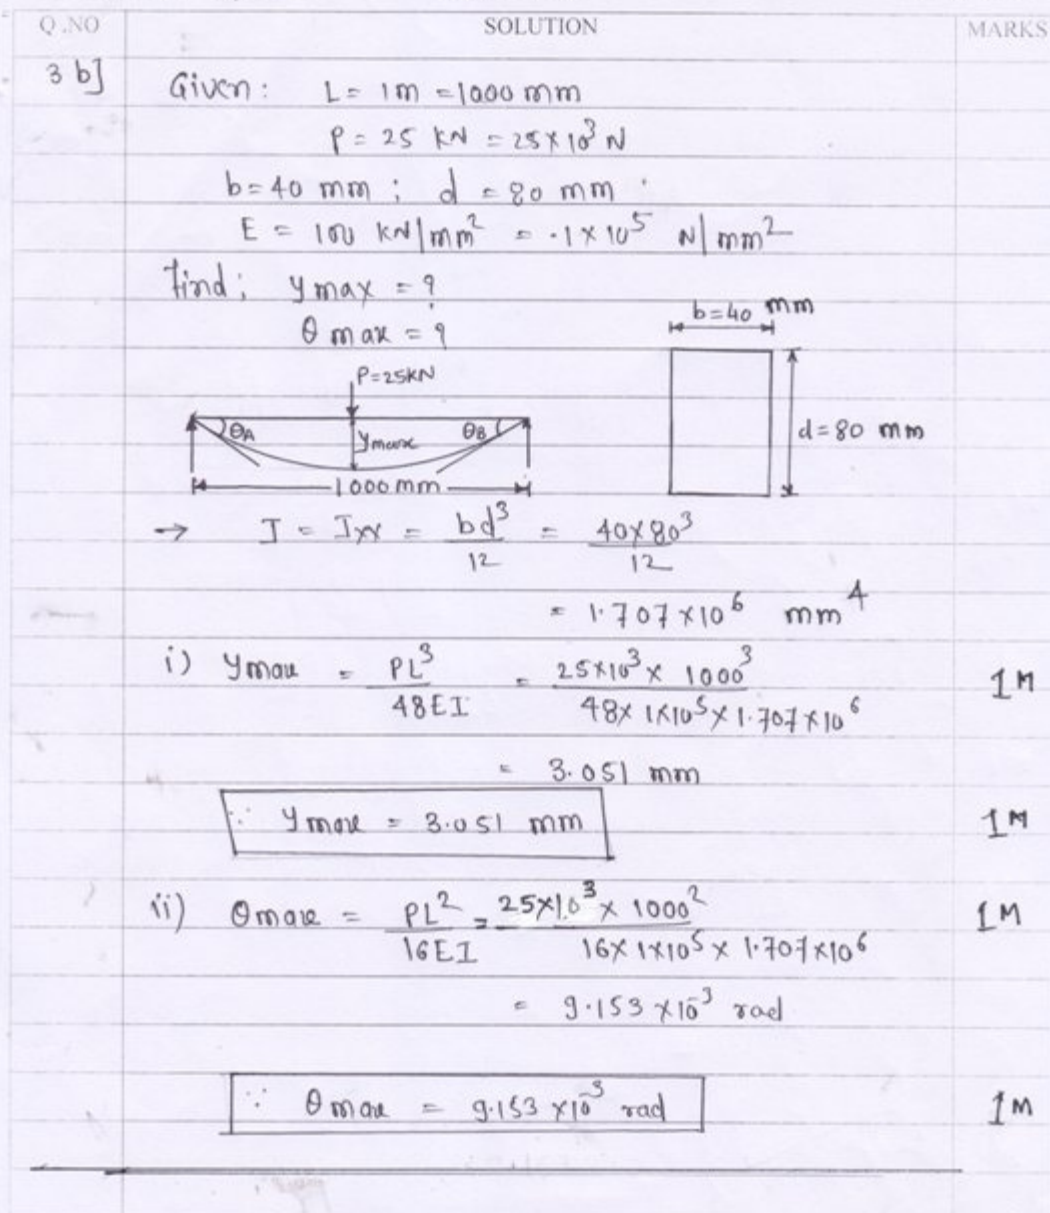 Q.NO SOLUTION MARKS
3 b] Given: L = 1m = 1000 mm
P = 25 kN = 25×10³ N
b = 40 mm ; d = 80 mm
E = 100 kN/mm² = 1×10⁵ N/mm²
Find; ymax = ?
θmax = ?
b=40 mm
P=25KN
θA ymax θB
d=80 mm
1000 mm
→ I = Ixx = bd³/12 = 40×80³/12
= 1.707×10⁶ mm⁴
i) ymax = PL³/48EI = 25×10³ × 1000³/48× 1×10⁵ × 1.707×10⁶ 1M
= 3.051 mm
∵ ymax = 3.051 mm 1M
ii) θmax = PL²/16EI = 25×10³ × 1000²/16× 1×10⁵ × 1.707×10⁶ 1M
= 9.153 ×10⁻³ rad
∵ θmax = 9.153 ×10⁻³ rad 1M